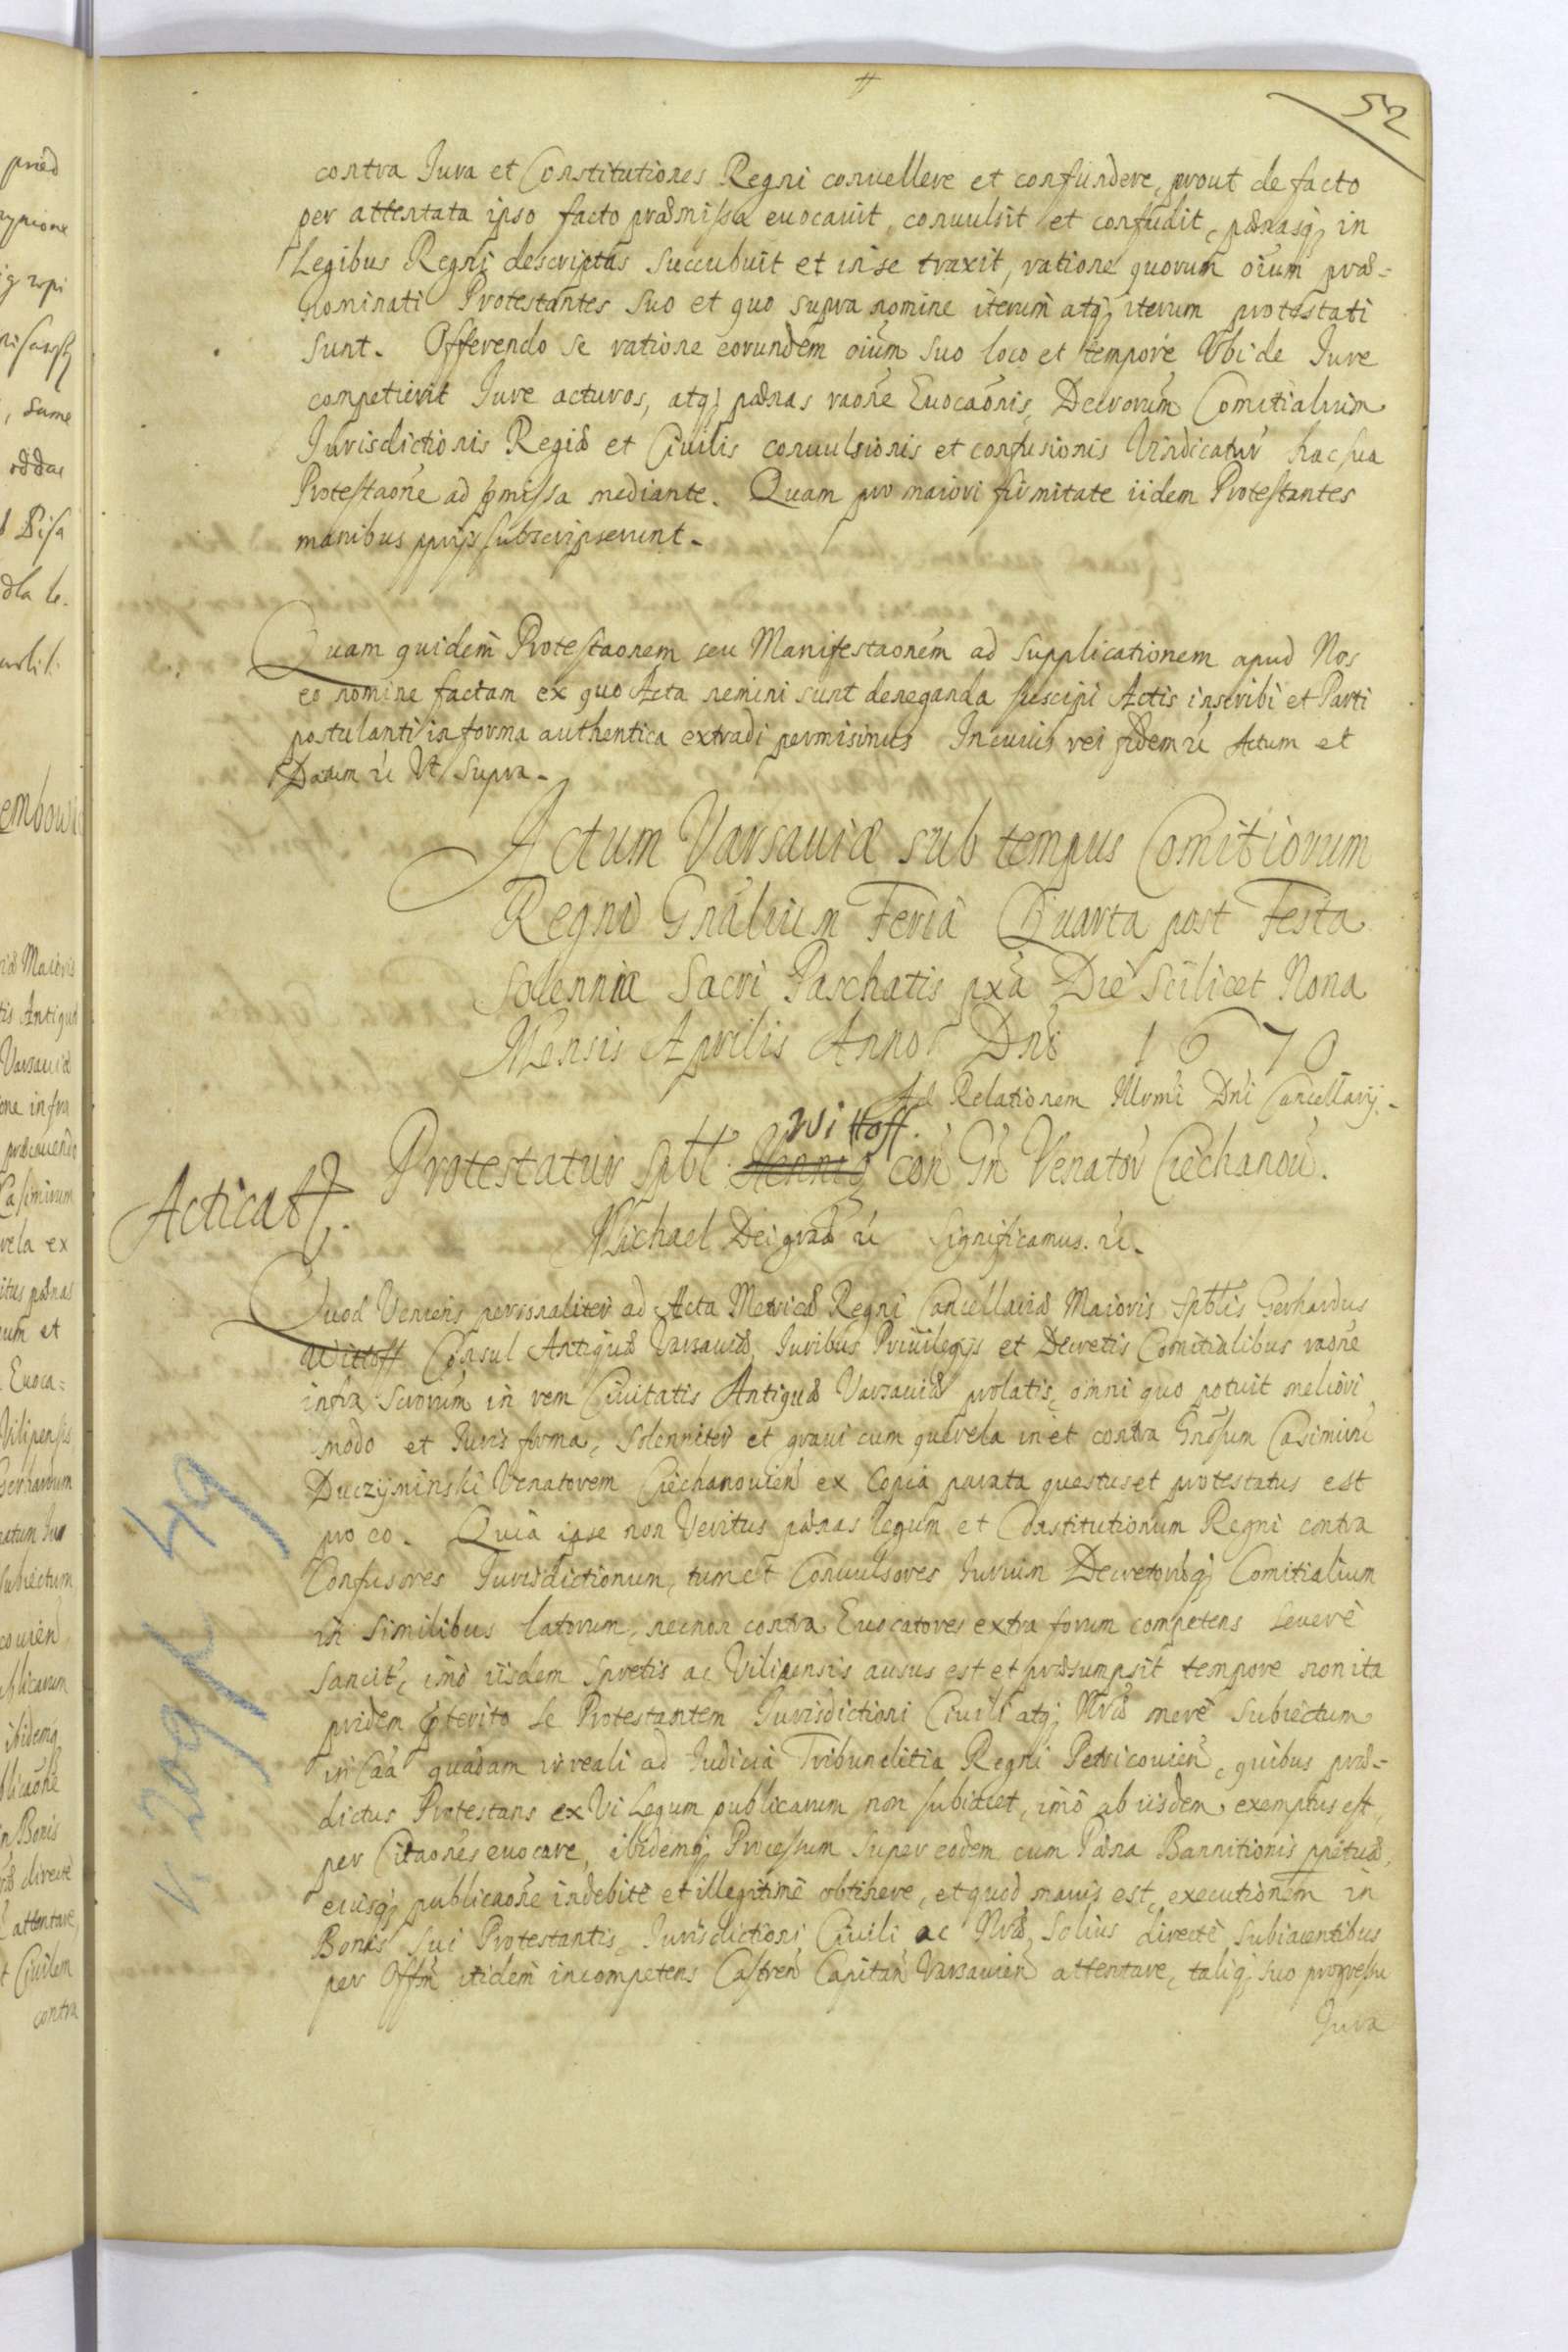 52
contra Jura et Constitutiones Regni conuellere et confundere, prout de facto
per attentata ipso facto præmissa euocauit, conuulsit et confudit, pænasq́ in
Legibus Regni descriptas succubuit et in se traxit, ratione quorum oiūm præ=
nominati Protestantes suo et quo supra nomine iterum atq́ iterum protestati
sunt. Offerendo se ratione eorundem oiūm suo loco et tempore Vbi de Jure
competierit Jure acturos, atq́ pænas raoñe Euocaoñis, Decretorum Comitialium
Jurisdictionis Regiæ et Ciuilis conuulsionis et confusionis Vindicatur hac sua
Protestaoñe ad pmissa mediante. Quam pro maiori firmitate iidem Protestantes
manibus pprijs subscripserunt.
Quam quidem Protestaonem seu Manifestaonem ad supplicationem apud Nos
eo nomine factam ex quo Acta nemini sunt deneganda suscipi Actis inscribi et Parti
postulanti in forma authentica extradi permisimus In cuius rei fidem etc Actum et
Datum etc Vt supra.
Actum Varsauiæ sub tempus Comitiorum
Regni Gnãlium Feria Quarta post Festa
Solennia Sacri Paschatis pxã Die scilicet Nona
Mensis Aprilis Anno Dni 1670
Ad Relationem Illrmi Dni Cancellarij.
Wittoff.
Protestatur Spbl. Hennig con Gn Venator Ciechanou.
Acticat.
Michael Dei gra etc Significamus. etc.
Quod Veniens personaliter ad Acta Metricæ Regni Cancellariæ Maioris Spblis Gerhardus
Wittoff Consul Antiquæ Varsauiæ, Juribus Priuilegijs et Decretis Comitialibus raoñe
infra scrorum in rem Ciuitatis Antiquæ Varsauiæ prolatis, omni quo potuit meliori
modo et Juris forma, solenniter et graui cum querela in et contra Gnosum Casimirū
Duczyminski Venatorem Ciechanouien ex Copia parata questus et protestatus est
pro eo. Quia ipse non Veritus pænas legum et Constitutionum Regni contra
Confusores Jurisdictionum, tum et Conuulsores Jurium Decretorq́ Comitialium
in similibus latorum, necnon contra Euocatores extra forum competens seuerè
sancit, imò iisdem spretis ac Vilipensis ausus est et præsumpsit tempore non ita
pridem pterito se Protestantem Jurisdictioni Ciuili atq́ Nræ merè subiectum
in Caa quadam irreali ad Judicia Tribunalitia Regni Petricouien, quibus præ=
dictus Protestans ex Vi Legum publicarum non subiacet, imò ab iisdem exemptus est,
per Citaones euocare, ibidemq́ Processum super eodem cum Pæna Bannitionis ppetuæ,
eiusq́ publicaoñe indebitè et illegitimè obtinere, et quod maius est, executionem in
Bonis sui Protestantis Jurisdictioni Ciuili ac Nræ solius directè subiacentibus
per Offm itidem incompetens Castren Capitan Varsauien attentare, taliq́ suo progressu
Jura
v. 209 k 49